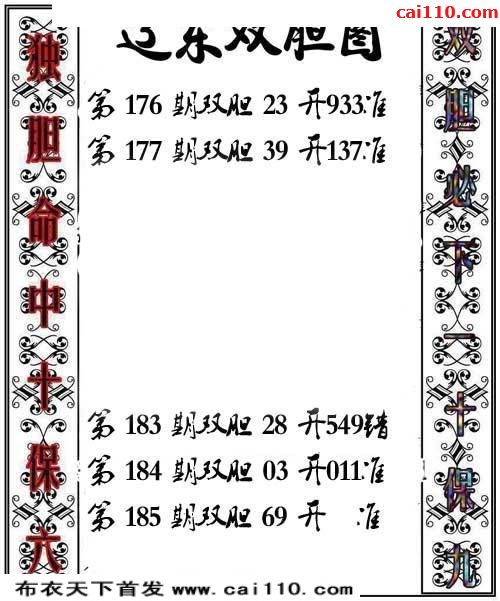 cai110.com
辽东双胆图
独胆命中十保六
第 176 期双胆 23 开933准
第 177 期双胆 39 开137准
第 183 期双胆 28 开549错
第 184 期双胆 03 开011准
第 185 期双胆 69 开 准
双胆必下一十保九
布衣天下首发 www.cai110.com